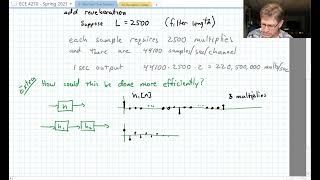 ECE 4270 - Spring 2021
add reverberation
Suppose L = 2500 (filter length)
each sample requires 2500 multiplies
and there are 44100 samples/sec/channel
1 sec output 44100·2500·2 = 220,500,000 mults/sec
How could this be done more efficiently?
h
h₁[n]
3 multiplies
h₁
h₂